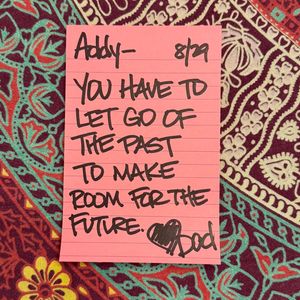 Addy- 8/29
YOU HAVE TO
LET GO OF
THE PAST
TO MAKE
ROOM FOR THE
FUTURE. Dad